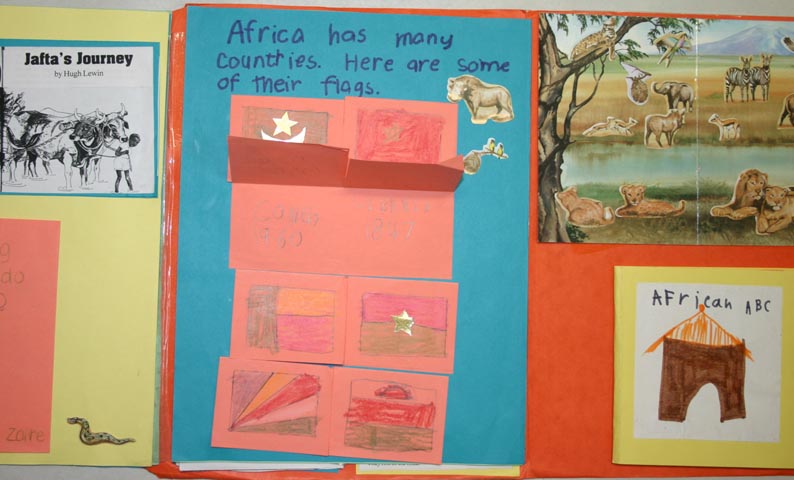 African ABC
Africa has many
Countries. Here are some
of their flags.
Jafta's Journey
by Hugh Lewin
do
zaire